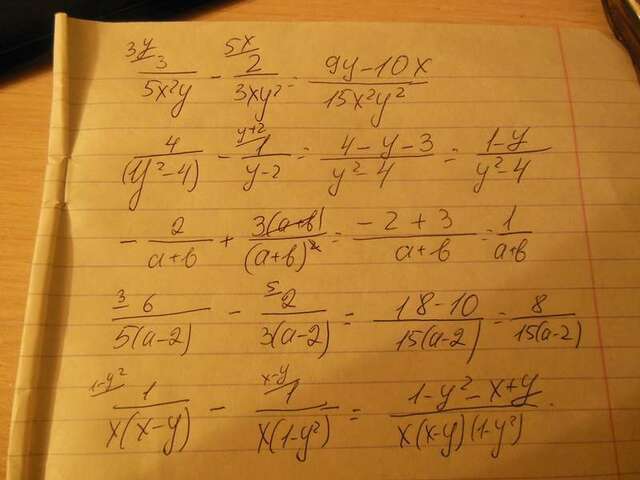 3y/ 3/(5x²y) - 5x/ 2/(3xy²) = (9y-10x)/(15x²y²)
4/(y²-4) - y+2/ 1/(y-2) = (4-y-3)/(y²-4) = (1-y)/(y²-4)
- 2/(a+b) + 3(a+b)/(a+b)² = (-2+3)/(a+b) = 1/(a+b)
3/ 6/(5(a-2)) - 5/ 2/(3(a-2)) = (18-10)/(15(a-2)) = 8/(15(a-2))
1-y²/ 1/(x(x-y)) - x-y/ 1/(x(1-y²)) = (1-y²-x+y)/(x(x-y)(1-y²)).